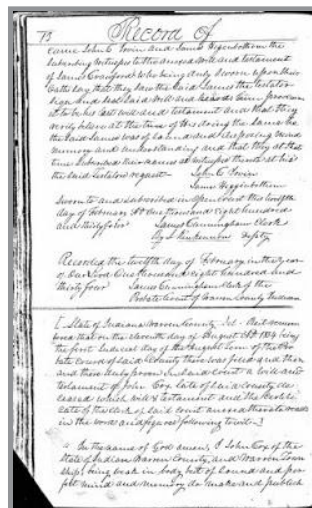 73 Record of
came John C Govin and James Higginbottom the
subscribing witnesses to the annexed will and testament
of James Crawford who being duly sworn upon their
oaths say that they saw the said James the testator
sign and seal said will and heard him pronounce
it to be his last will and testament and that they
verily believe at the time of his doing the same he
the said James was of sound and disposing mind
memory and understanding and that they at that
time subscribed their names as witnesses thereto at his
the said testators request— John C Govin
James Higginbottom
Sworn to and subscribed in open court this twelfth
day of February AD One thousand eight hundred
and thirty four James Cunningham Clerk
By Deputy
Recorded the twelfth day of February in the year
of Our Lord One thousand eight hundred and
thirty four James Cunningham Clerk of the
Probate Court of Warren County Indiana
[State of Indiana Warren County Sct. Be it remem
bered that on the eleventh day of August AD 1834 being
the first Judicial day of the August Term of the Pro
bate Court of said County there was filed and then
and there duly proven in said court a will and
testament of John Cox late of said county de
ceased which will & testament and the certifi
cate of the clerk of said court annexed thereto reads
in the words and figures following to wit:]
"In the name of God amen, I John Cox of the
State of Indiana Warren County, and Warren Town
ship, being weak in body but of sound and per
fect mind and memory do make and publish